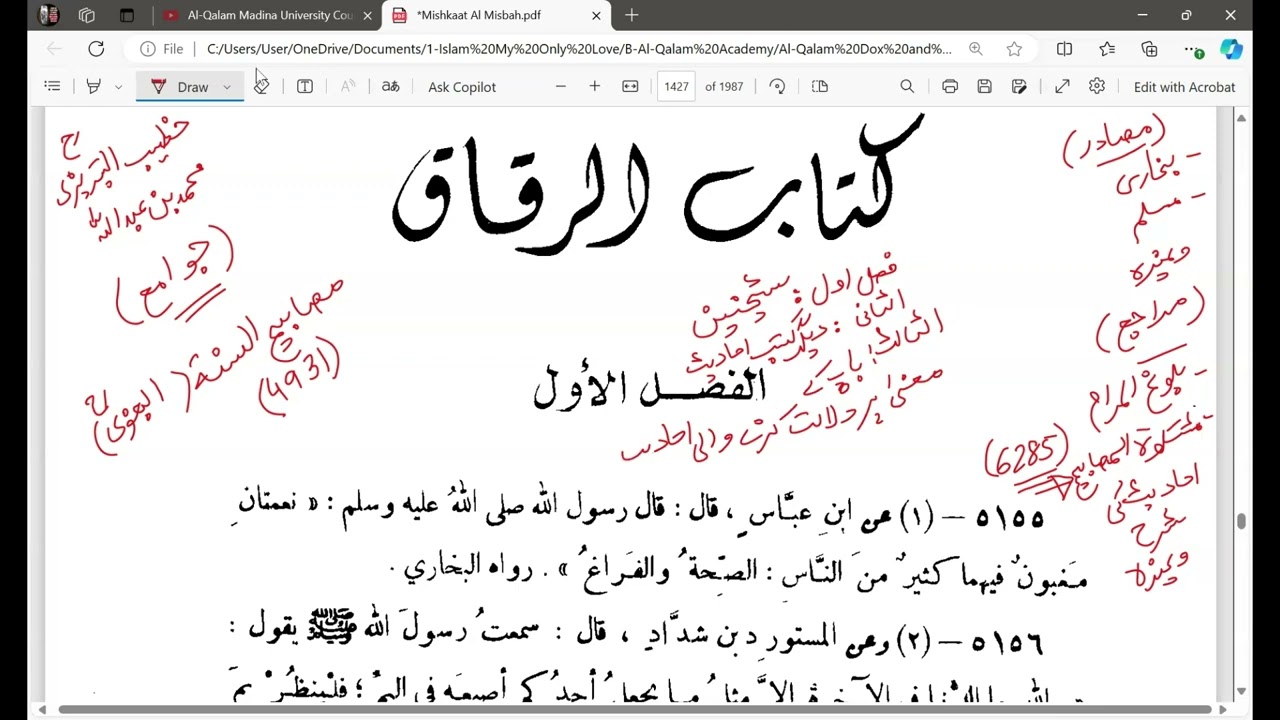 Al-Qalam Madina University Cou
*Mishkaat Al Misbah.pdf
File
C:/Users/User/OneDrive/Documents/1-Islam%20My%20Only%20Love/B-Al-Qalam%20Academy//Al-Qalam%20Dox%20and%...
Draw
Ask Copilot
1427 of 1987
Edit with Acrobat
كتاب الرقاق
(مصادر)
- بخاری
- مسلم
وغیرہ
(مراجع)
- بلوغ المرام
- مشکوۃ المصابیح
(6285)
احادیث کی
شرح
وغیرہ
خطیب التبریزی
محمد بن عبداللہ
(جوامع)
مصابیح السنة (البغوی
(4931)
فصل اول : شیخین
الثانی : دیگر کتب احادیث
الثالث : باب کے
معنیٰ پر دلالت کرنے والی احادیث
الفصل الأول
٥١٥٥ – (١) عن ابنِ عبَّاسٍ ، قال : قال رسول الله صلى اللهُ عليه وسلم : « نعمتانِ
مَغبونٌ فيهما كثيرٌ منَ النَّاسِ : الصِّحةُ والفَراغُ » . رواه البخاري .
٥١٥٦ – (٢) وعن المستورِدِ بن شدَّادٍ ، قال : سمعتُ رسولَ الله ﷺ يقول :